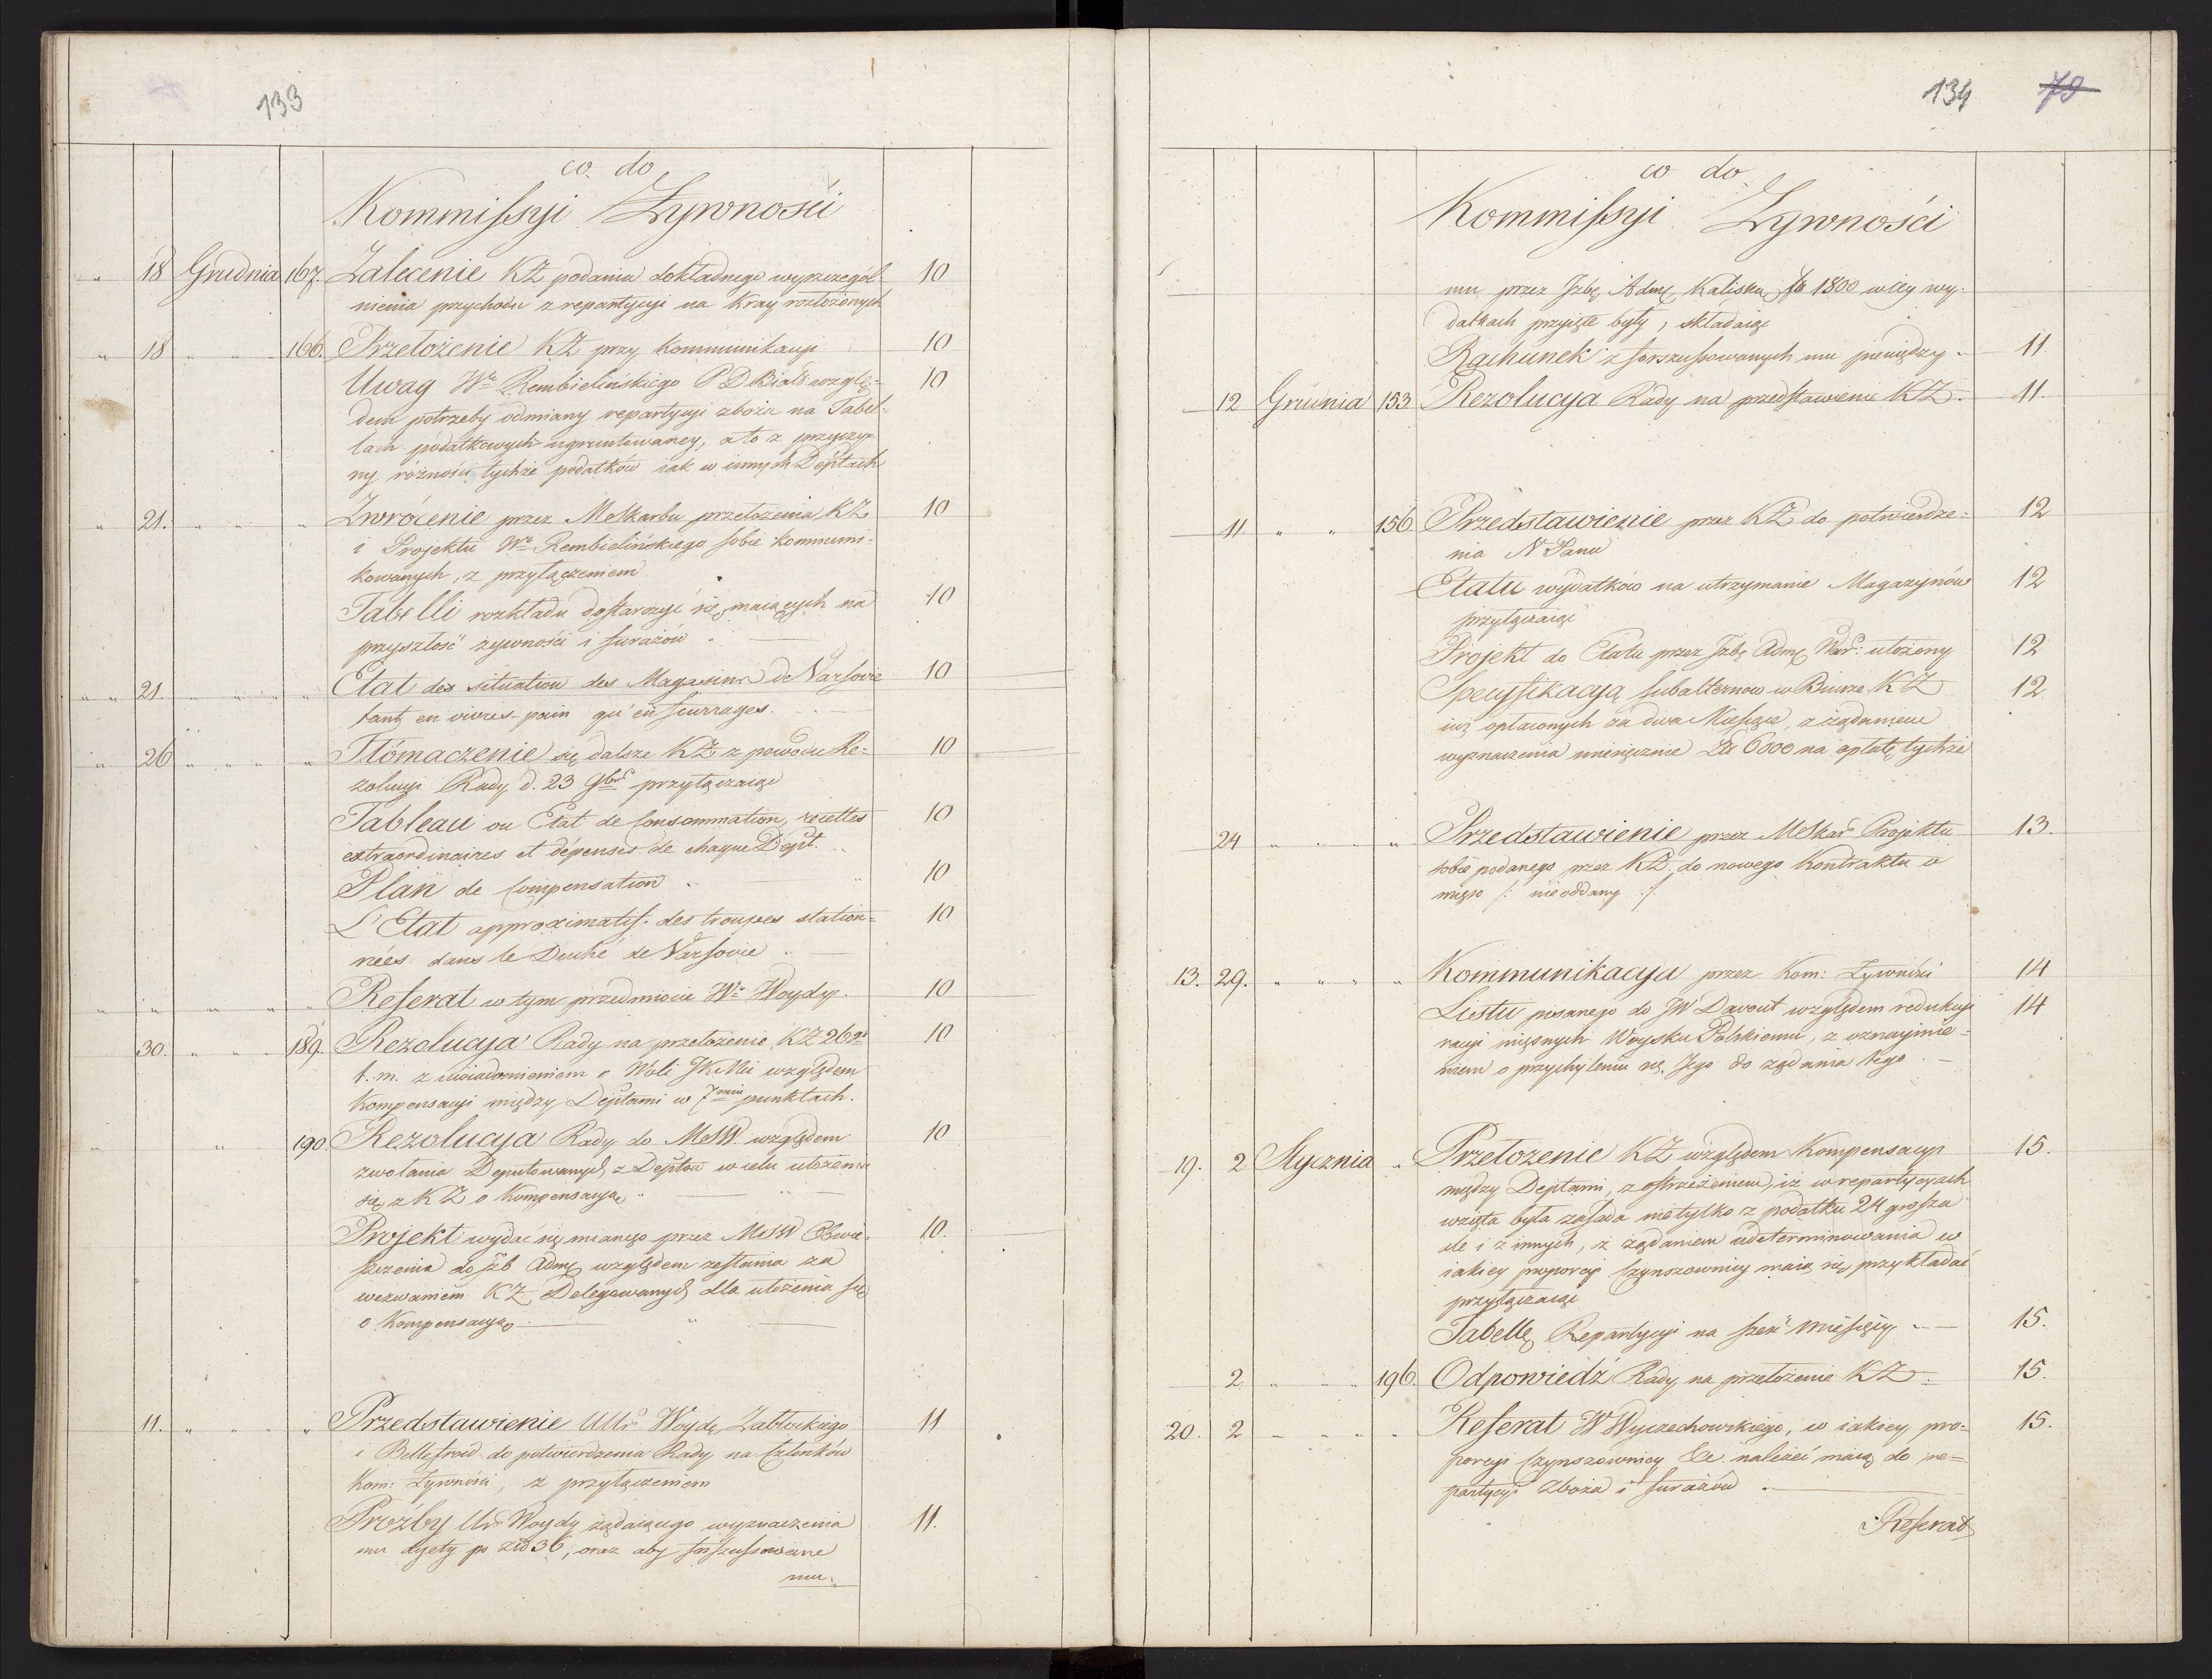 133
co do
Kommissyi Żywności
" 18 Grudnia 167. Zalecenie KŻ podania dokładnego wyszczegól- 10
nienia przychodu z repartycyi na Kray rozłożonych
" 18 " " 166. Przełożenie KŻ przy kommunikacyi 10
Uwag Wo Rembielińskiego P D Biało wzglę= 10
dem potrzeby odmiany repartycyi zboża na Tabel-
lach podatkowych ugruntowaney, a to z przyczy=
ny różności tychże podatków iak w innych Deptach
" 21. " " " Zwrócenie przez MoSkarbu przełożenia KŻ 10
i Projektu Wo Rembielińskiego sobie kommuni-
kowanych, z przyłączeniem
Tabelli rozkładu dostarczyć się maiących na 10
przyszłość żywności i furażów
" " 21. " " " Etat des situation des Magasins de Varsovie 10
tant en vivres-pain qu'en fourrages.
" 26 " " " Tłómaczenie się dalsze KŻ z powodu Re= 10
zolucyi Rady d. 23 9bra przyłączaiąc
Tableau ou Etat de Consommation, recettes 10
extraordinaires et dépenses de chaque Dept.
Plan de Compensation 10
L'Etat approximatif des troupes station= 10
nées dans le Duché de Varsovie
" " " " " Referat w tym przedmiocie Wo Woydy. 10
30. " " 189. Rezolucya Rady na przełożenie KŻ 26go 10
t. m. z uwiadomieniem o Woli JKMci względem
Kompensacyi między Deptami w 7miu punktach.
" " 190. Rezolucya Rady do MoSW względem 10
zwołania Deputowanych z Deptów w celu ułożenia
się z KŻ o Kompensacyą
Projekt wydać się mianego przez MoSW Obwie- 10.
szczenia do Izb Admych względem zesłania za
wezwaniem KŻ Delegowanych dla ułożenia się
o Kompensacyą
11. " " " Przedstawienie UUr Woydę, Zabłockiego 11
i Bellefroid do potwierdzenia Rady na Członków
Kom: Żywności, z przyłączeniem
Prozby Ur Woydy żądaiącego wyznaczenia 11.
mu dyety po Złp 36, oraz aby forszussowane
mu.
134 79
co do
Kommissyi Żywności
mu przez Izbę Admą Kaliską 1800 w iey wy-
datkach przyięte były, składaiąc
Rachunek z forszussowanych mu pieniędzy 11.
12 Grudnia 153 Rezolucya Rady na przedstawienie KŻ. 11.
11 " " 156. Przedstawienie przez KŻ do potwierdze= 12
nia N Panu
Etatu wydatków na utrzymanie Magazynów 12
przyłączaiąc
Projekt do Etatu przez Izbę Admą War: ułożony 12
Specyfikacyą subalternow w Biurze KŻ 12
iuż opłaconych za dwa Miesiące, z żądaniem
wyznaczenia miesięcznie Złp 6000 na opłatę tychże
24 " " " Przedstawienie przez MSkar Projektu 13.
sobie podanego przez KŻ do nowego Kontraktu o
mięso /: nieoddany :/
13. 29. " " " Kommunikacya przez Kom: Żywności 14
Listu pisanego do JW Davout względem redukcyi 14
racyi mięsnych Woysku Polskiemu, z oznaymie=
niem o przychyleniu się Jego do żądania tego
19. 2 Stycznia " Przełożenie KŻ względem Kompensacyi 15.
między Deptami, z ostrzeżeniem, iż w repartycyach
wzięta była zasada nietylko z podatku 24 grosza
ale i z innych, z żądaniem udeterminowania w
iakiey proporcyi Czynszownicy maią się przykładać
przyłączaiąc
Tabellę Repartycyi na sześć miesięcy 15.
2 " " 196. Odpowiedź Rady na przełożenie KŻ. 15.
20. 2 " " " Referat W Wyczechowskiego, w iakiey pro= 15.
porcyi Czynszownicy &c należeć maią do re=
partycyi zboża i furażów
Referat